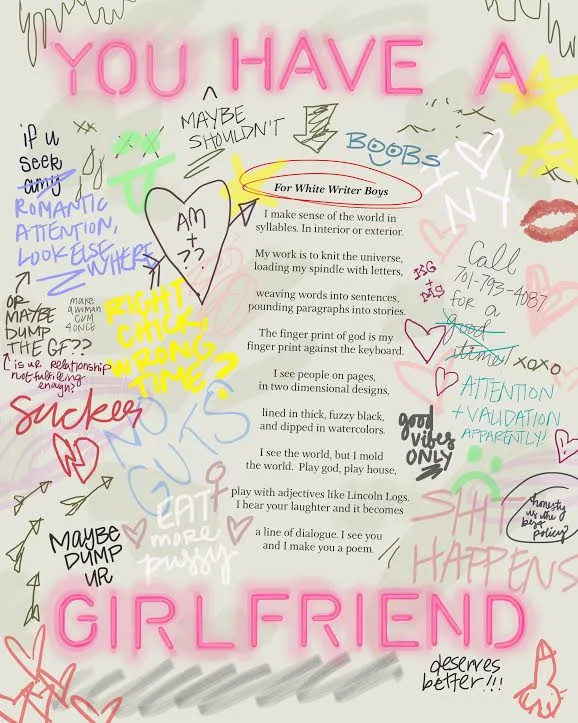 YOU HAVE A
^
MAYBE
SHOULDN'T
BOOBS
I ♡
NY
if u
seek
amy
ROMANTIC
ATTENTION,
LOOK ELSE
WHERE
AM
+
??
For White Writer Boys
I make sense of the world in
syllables. In interior or exterior.
My work is to knit the universe,
loading my spindle with letters,
weaving words into sentences,
pounding paragraphs into stories.
The finger print of god is my
finger print against the keyboard.
I see people on pages,
in two dimensional designs,
lined in thick, fuzzy black,
and dipped in watercolors.
I see the world, but I mold
the world. Play god, play house,
play with adjectives like Lincoln Logs.
I hear your laughter and it becomes
a line of dialogue. I see you
and I make you a poem.
OR
MAYBE
DUMP
THE GF??
make
a woman
CUM
4 ONCE
is ur relationship
not fulfilling
enough?
RIGHT
CHICK,
WRONG
TIME?
sucker
NO
GUTS
MAYBE
DUMP
UR
EAT
more
pussy
+
Call
701-793-4087
for a
good
time!
xoxo
ATTENTION
+ VALIDATION
APPARENTLY!
good
vibes
ONLY
SHIT
HAPPENS
honesty
is the
best
policy?
GIRLFRIEND
deserves
better!!!